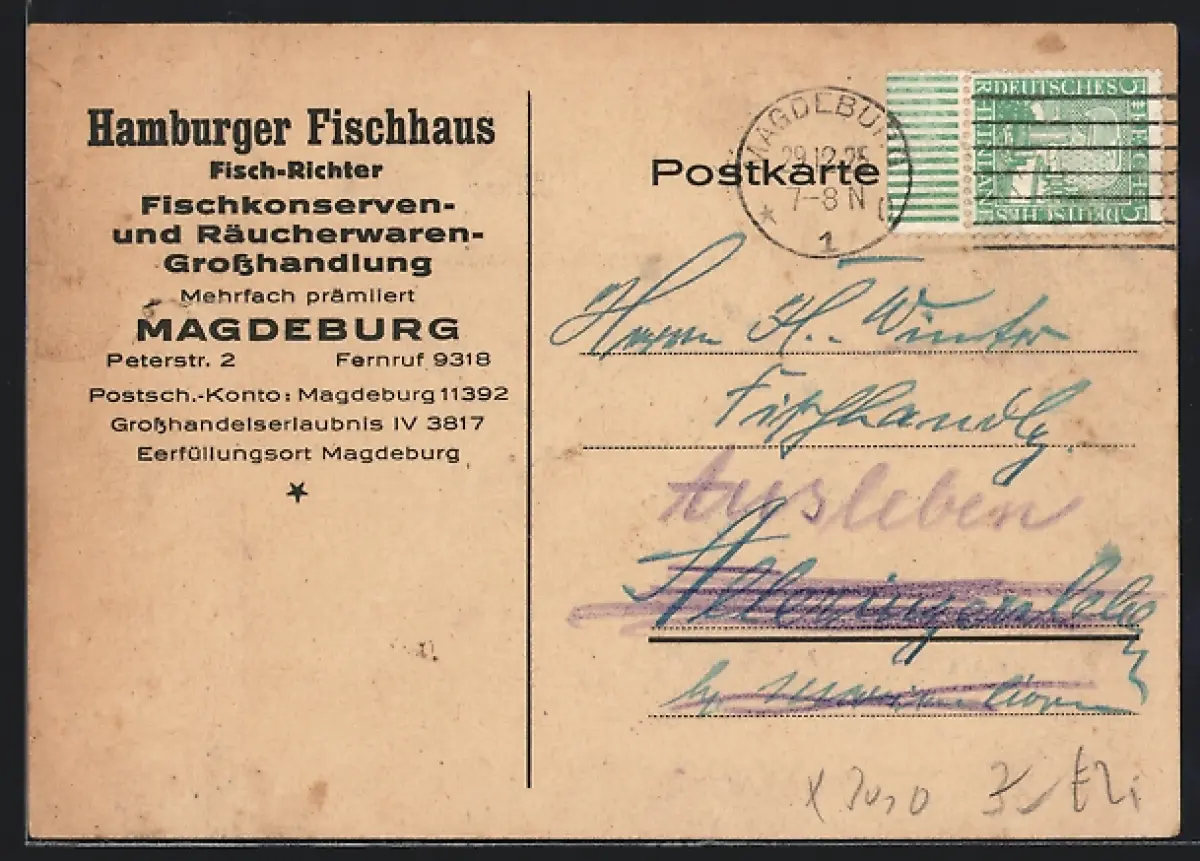 Hamburger Fischhaus
Fisch-Richter
Fischkonserven-
und Räucherwaren-
Großhandlung
Mehrfach prämiiert
MAGDEBURG
Peterstr. 2 Fernruf 9318
Postsch.-Konto: Magdeburg 11392
Großhandelserlaubnis IV 3817
Eerfüllungsort Magdeburg
MAGDEBURG
29.12.25
7-8 N
1
DEUTSCHES
5
5
Postkarte
Herrn H. Winter
Fischhandlg.
Ausleben